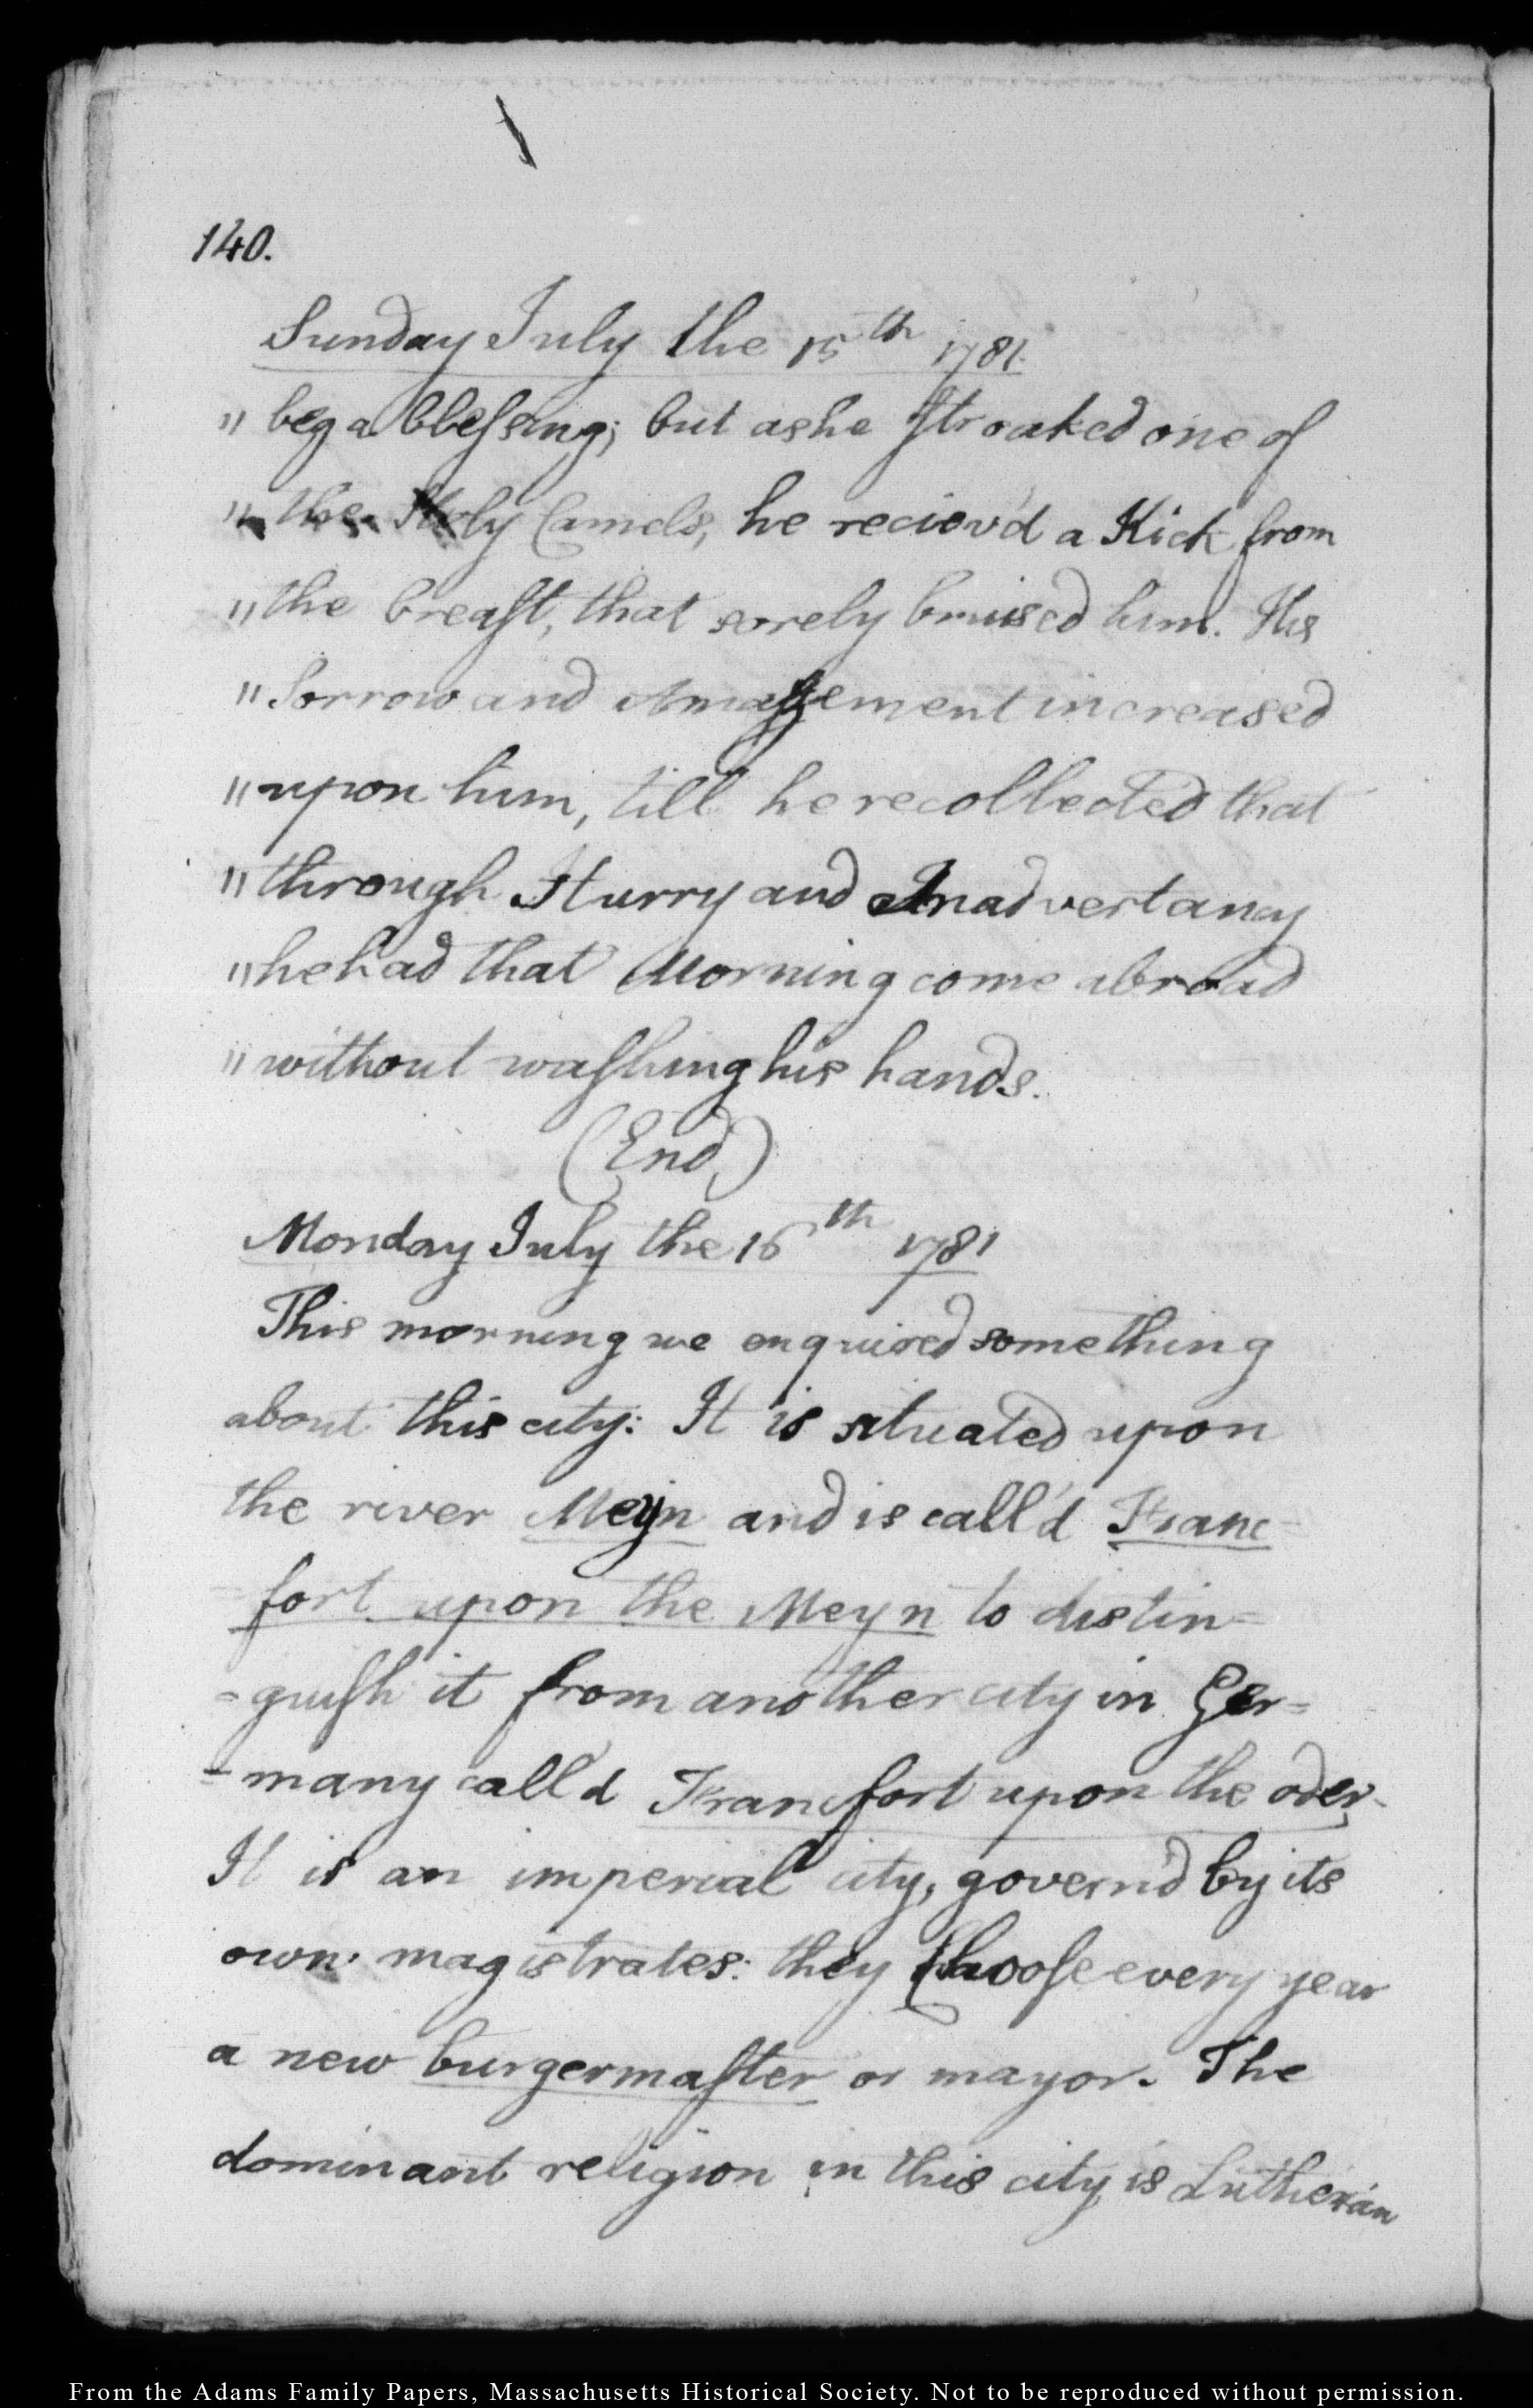 140.
Sunday July the 15th 1781.
" beg a blessing; but as he stroaked one of
" the Holy Camels, he reciev'd a Kick from
" the breast, that sorely bruised him. His
" Sorrow and Amazement increased
" upon him, till he recollected that
" through Hurry and Inadvertancy
" he had that Morning come abroad
" without washing his hands.
(End)
Monday July the 16th 1781
This morning we enquired something
about this city: It is situated upon
the river Meyn and is call'd Franc-
fort upon the Meyn to distin=
=guish it from another city in Ger=
=many call'd Francfort upon the oder.
It is an imperial city, govern'd by its
own magistrates: they Choose every year
a new burgermaster or mayor. The
dominant religion in this city is Lutheran
From the Adams Family Papers, Massachusetts Historical Society. Not to be reproduced without permission.